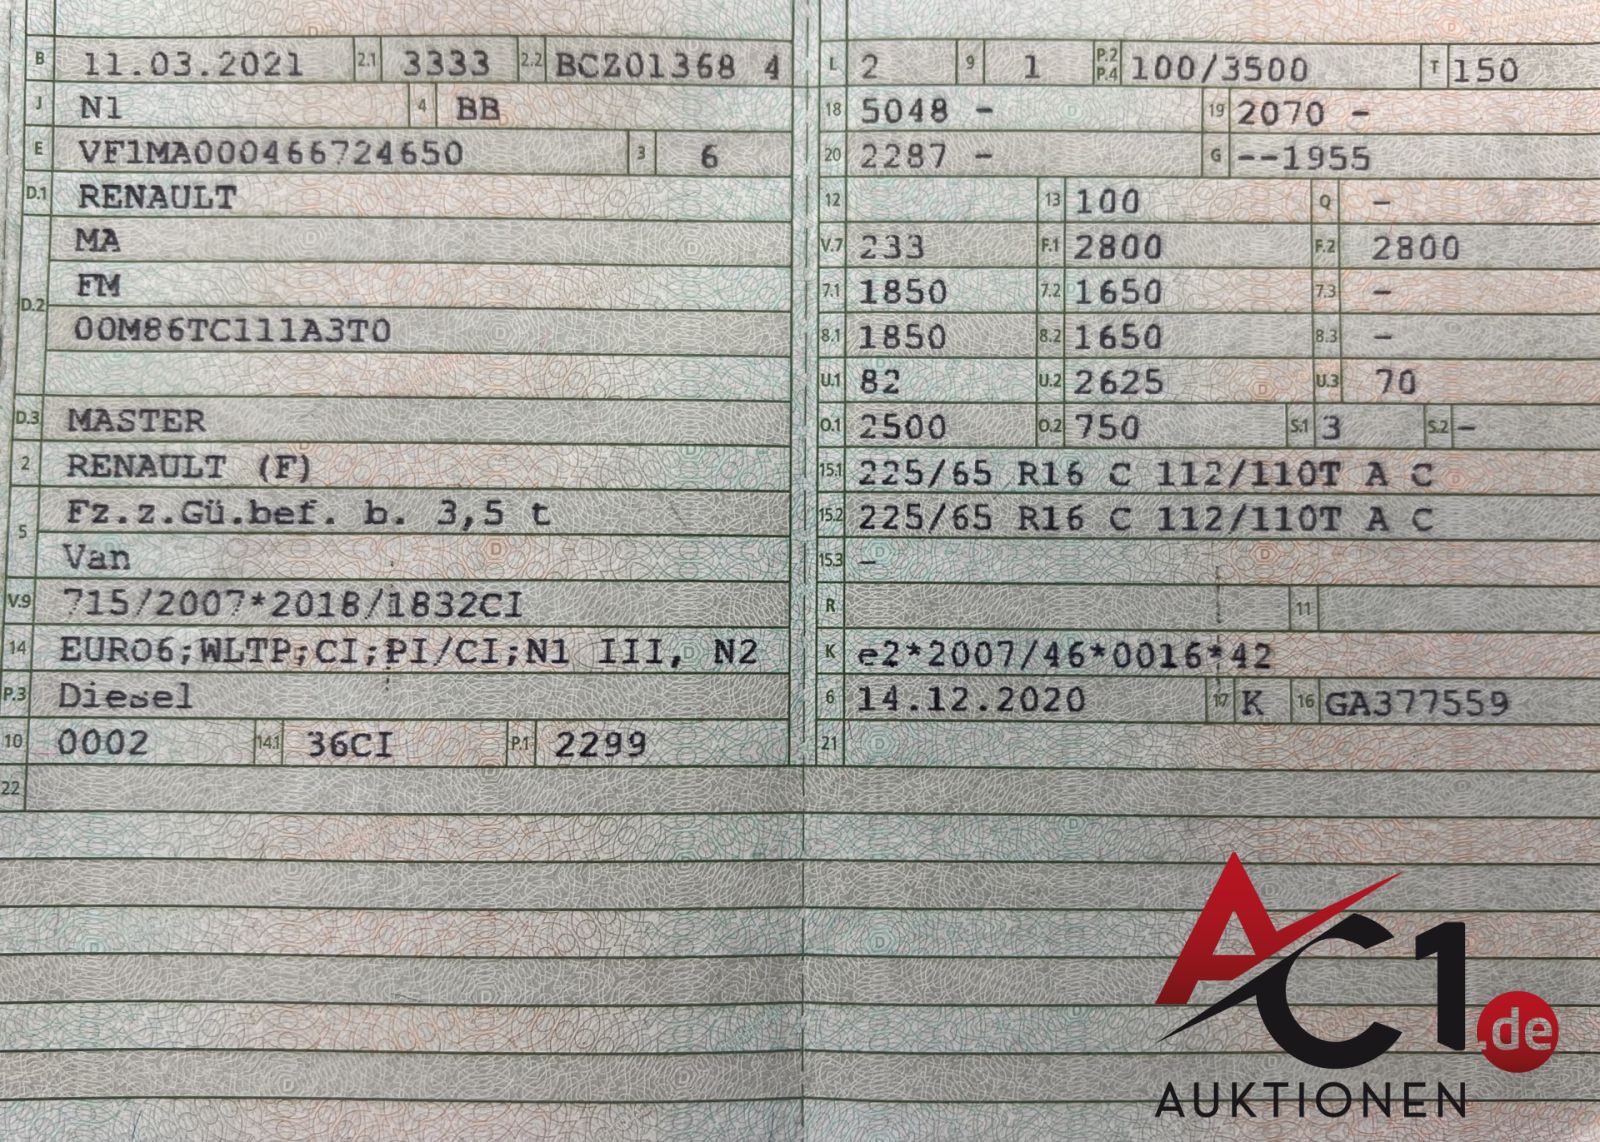 B 11.03.2021 2.1 3333 2.2 BCZ01368 4
J N1 4 BB
E VF1MA000466724650 3 6
D.1 RENAULT
MA
D.2 FM
00M86TC111A3T0
D.3 MASTER
2 RENAULT (F)
5 Fz.z.Gü.bef. b. 3,5 t
Van
V.9 715/2007*2018/1832CI
14 EURO6;WLTP;CI;PI/CI;N1 III, N2
P.3 Diesel
10 0002 14.1 36CI P.1 2299
22
L 2 9 1 P.2 P.4 100/3500 T 150
18 5048 - 19 2070 -
20 2287 - G --1955
12 13 100 Q -
V.7 233 F.1 2800 F.2 2800
7.1 1850 7.2 1650 7.3 -
8.1 1850 8.2 1650 8.3 -
U.1 82 U.2 2625 U.3 70
O.1 2500 O.2 750 S.1 3 S.2 -
15.1 225/65 R16 C 112/110T A C
15.2 225/65 R16 C 112/110T A C
15.3 -
R 11
K e2*2007/46*0016*42
6 14.12.2020 17 K 16 GA377559
21
AC1.de
AUKTIONEN